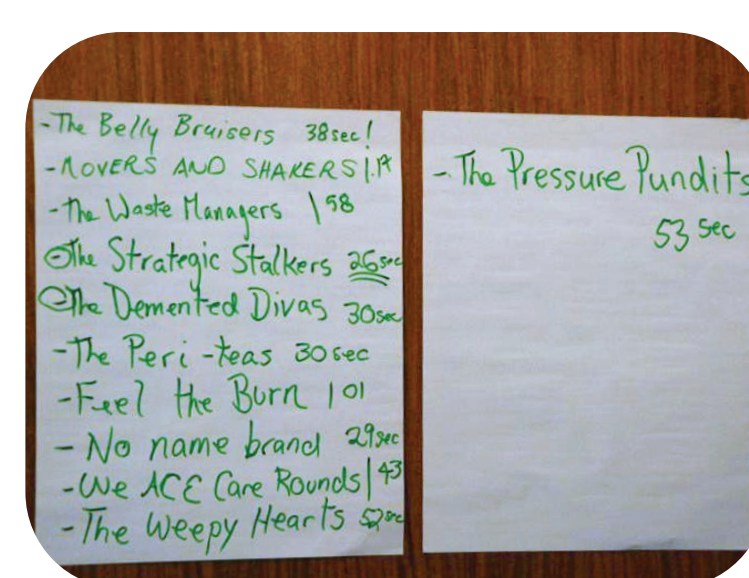 -The Belly Bruisers 38sec!
-MOVERS AND SHAKERS 1.17
-The Waste Managers 1 58
-The Strategic Stalkers 26sec
-The Demented Divas 30sec
-The Peri-teas 30sec
-Feel the Burn 1 01
- No name brand 29sec
-We ACE Care Rounds 1 43
-The Weepy Hearts 52sec
- The Pressure Pundits
53 sec